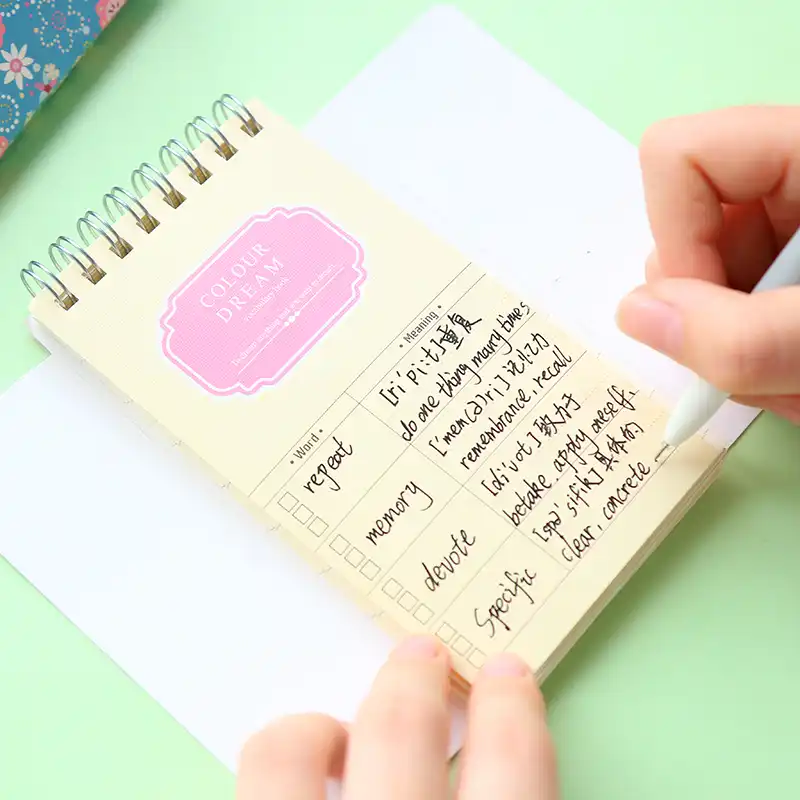 COLOUR
DREAM
vocabulary book
• Word •
• Meaning •
repeat
[ri'pi:t]重复
do one thing many times
memory
['mem(ə)ri]记忆力
remembrance, recall
devote
[di'vot]致力于
betake, apply oneself.
Specific
[spə'sifik]具体的
clear, concrete